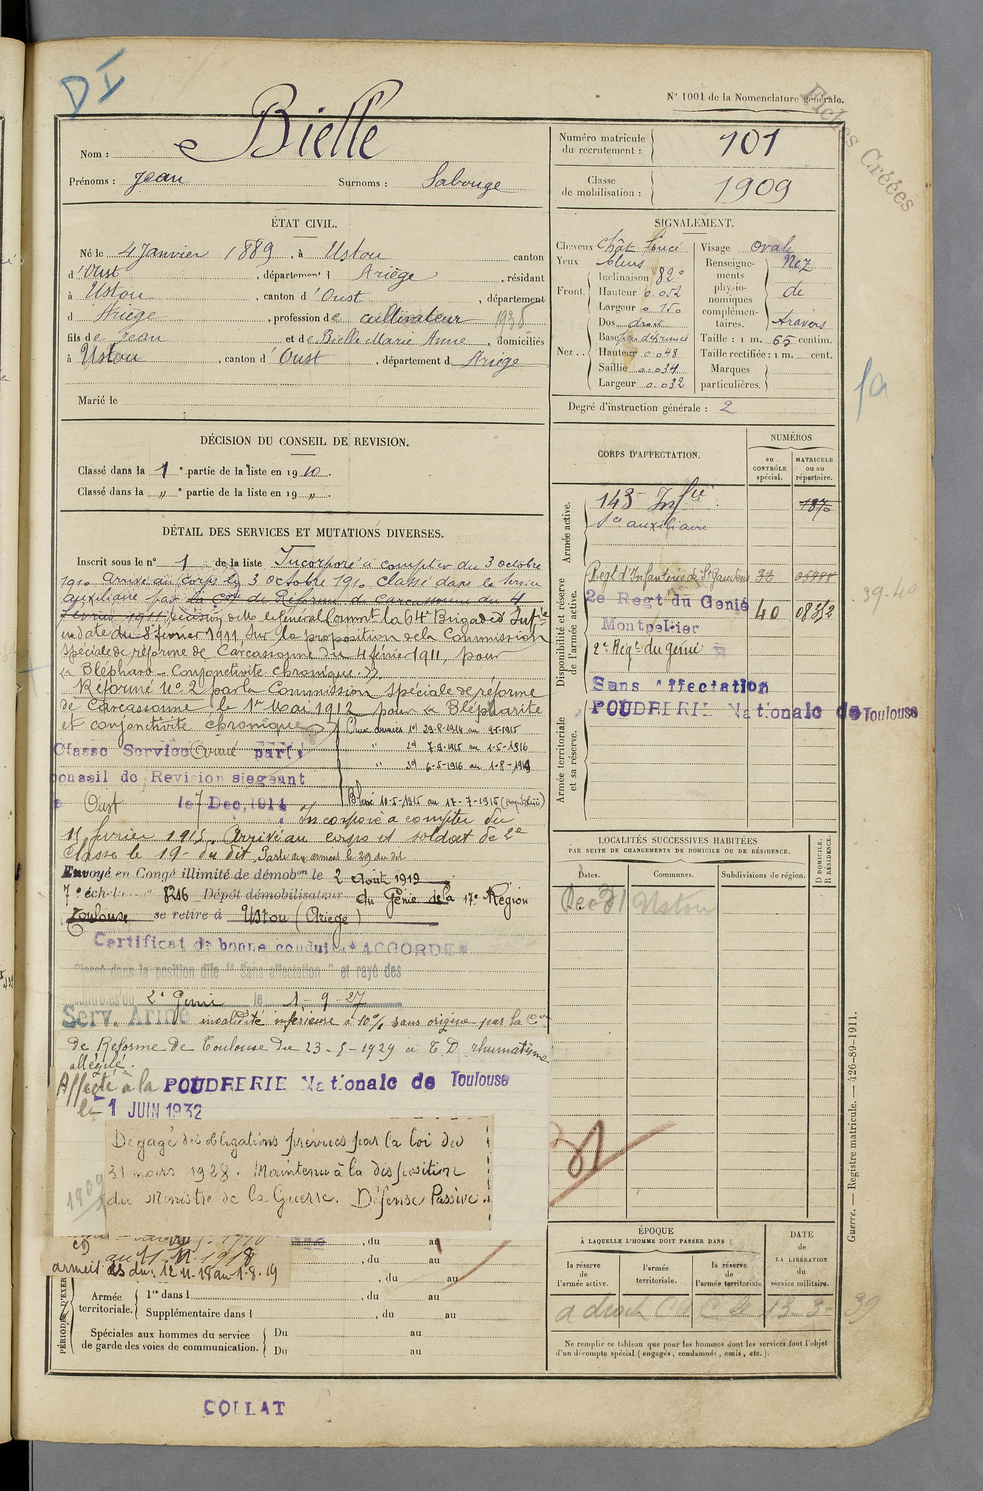 D I
N° 1001 de la Nomenclature générale.
Fiches Créées
Nom : Bielle
Prénoms : Jean Surnoms : Sabouge
Numéro matricule du recrutement : 101
Classe de mobilisation : 1909
ÉTAT CIVIL.
Né le 4 Janvier 1889, à Ustou canton
d'Oust, département d Ariège, résidant
à Ustou, canton d'Oust, département
d Ariège, profession de cultivateur 1935
fils de Jean et de Bielle Marie Anne, domiciliés
à Ustou, canton d'Oust, département d Ariège
Marié le
SIGNALEMENT.
Cheveux chât foncé
Yeux bleus
Front. Inclinaison 82°
Hauteur 0.052
Largeur 0.150
Nez.. Dos droit
Base
Hauteur 0.048
Saillie 0.034
Largeur 0.032
Visage ovale
Renseignements physionomiques complémentaires. Nez de travers
Taille : 1 m. 65 centim.
Taille rectifiée : 1 m. cent.
Marques particulières.
Degré d'instruction générale : 2
fa
DÉCISION DU CONSEIL DE REVISION.
Classé dans la 1e partie de la liste en 1910.
Classé dans la " e partie de la liste en 19 ".
DÉTAIL DES SERVICES ET MUTATIONS DIVERSES.
Inscrit sous le n° 1 de la liste Incorporé à compter du 3 octobre
1910 arrivé au corps le 3 octobre 1910 classé dans le service
auxiliaire par la Con de Réforme de Carcassonne du 4
février 1911 décision de Mr le Général Commt la 64e Brigade d'Infie
en date du 8 février 1911 sur la proposition de la Commission
spéciale de réforme de Carcassonne du 4 février 1911, pour
"Blépharo-Conjonctivite chronique".
Réformé n° 2 par la Commission spéciale de réforme
de Carcassonne le 1er Mai 1912 pour Blépharite
et conjonctivite chronique
Aux armées 1° 29-8-1914 au 9-5-1915
" 2° 7-9-1915 au 1-5-1916
" 3° 6-5-1916 au 1-8-1919
Classé Service Armé par le
Conseil de Revision siégeant
à Oust le 7 Dec. 1914
Blessé 10-5-1915 au 17-7-1915
Incorporé à compter du
février 1915. Arrivé au corps et soldat de 2e
classe le 19 du dit. Parti aux armées le 29 du dit
Envoyé en Congé illimité de démobon le 2 Août 1919
7e échelon Dépôt démobilisateur du Génie de la 17e Région
Toulouse se retire à Ustou (Ariège)
Certificat de bonne conduite *ACCORDÉ*
Classé dans la position dite "Sans affectation" et rayé des
contrôles du 2e Génie le 1-9-27
Serv. Armé invalidité inférieure à 10% sans origine par la Con
de Réforme de Toulouse du 23-5-1929 à T.D. rhumatisme
allégué.
Affecté à la POUDRERIE Nationale de Toulouse
le 1 JUIN 1932
Dégagé des obligations prévues par la loi du
31 mars 1928. Maintenu à la disposition
du Ministre de la Guerre. Défense Passive.
1909
CD
au 11-11-1918
armeit. AS du 12-11-18 au 1-8-19
, du au
, du au
, du au
PÉRIODES D'EXER
Armée territoriale. 1re dans l , du au
Supplémentaire dans l , du au
Spéciales aux hommes du service de garde des voies de communication. Du au
Du au
CORPS D'AFFECTATION.
NUMÉROS
au CONTRÔLE spécial.
MATRICULE ou au répertoire.
Armée active.
143e Infie 1870
Sce auxiliaire
Disponibilité et réserve de l'armée active.
Régt d'Infanterie de St Gaudens
2e Regt du Génie 40 08312
Montpellier
2e Regt du génie
39-40
Sans Affectation
POUDRERIE Nationale de Toulouse
Armée territoriale et sa réserve.
LOCALITÉS SUCCESSIVES HABITÉES
PAR SUITE DE CHANGEMENTS DE DOMICILE OU DE RÉSIDENCE.
Dates. Communes. Subdivisions de région. D DOMICILE. R RÉSIDENCE.
Ustou
ÉPOQUE
À LAQUELLE L'HOMME DOIT PASSER DANS :
la réserve de l'armée active.
l'armée territoriale.
la réserve de l'armée territoriale
DATE de LA LIBÉRATION du service militaire.
a droit C de C le 13-3-39
Ne remplir ce tableau que pour les hommes dont les services font l'objet
d'un décompte spécial (engagés, condamnés, omis, etc.).
Guerre. — Registre matricule. — 426-89-1911.
COLLAT